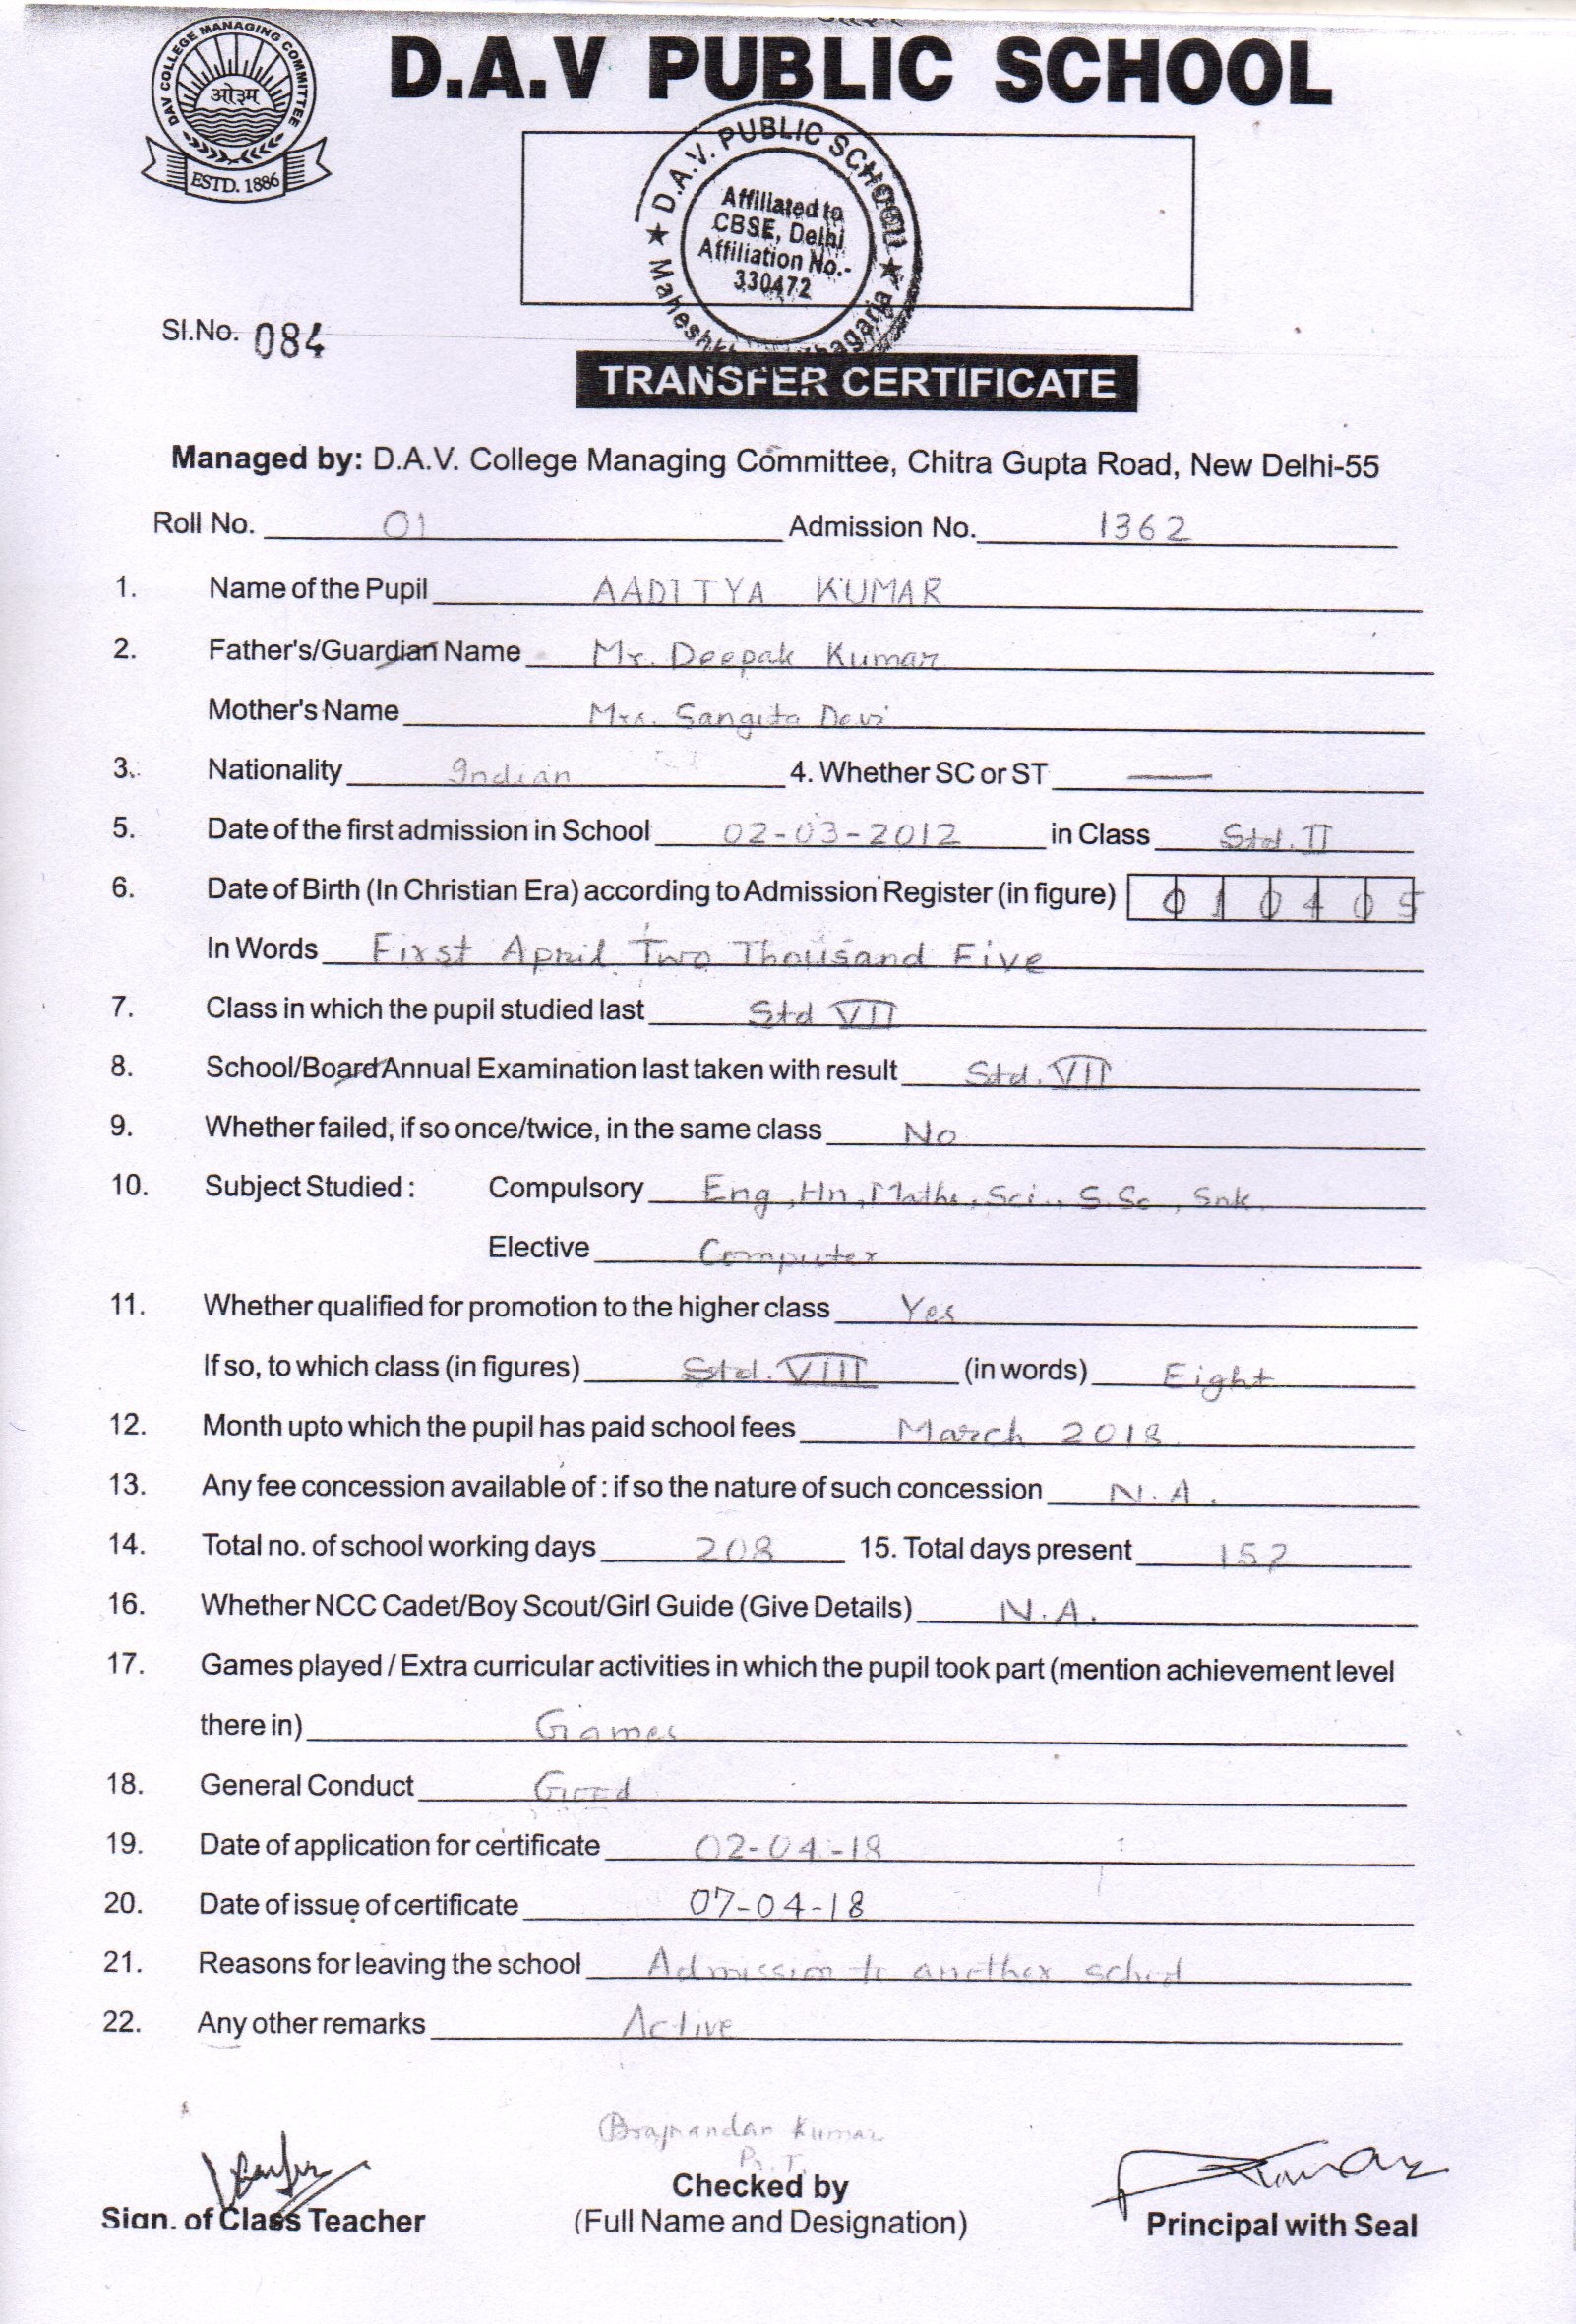 DAV COLLEGE MANAGING COMMITTEE
ओ३म्
ESTD. 1886
D.A.V PUBLIC SCHOOL
D.A.V. PUBLIC SCHOOL
Affiliated to
CBSE, Delhi
Affiliation No.-
330472
Sl.No. 084
TRANSFER CERTIFICATE
Managed by: D.A.V. College Managing Committee, Chitra Gupta Road, New Delhi-55
Roll No. 01 Admission No. 1362
1. Name of the Pupil AADITYA KUMAR
2. Father's/Guardian Name Mr. Deepak Kumar
Mother's Name Mrs. Sangita Devi
3. Nationality Indian 4. Whether SC or ST —
5. Date of the first admission in School 02-03-2012 in Class Std. II
6. Date of Birth (In Christian Era) according to Admission Register (in figure) 0 1 0 4 0 5
In Words First April Two Thousand Five
7. Class in which the pupil studied last Std VII
8. School/Board Annual Examination last taken with result Std. VII
9. Whether failed, if so once/twice, in the same class No
10. Subject Studied : Compulsory Eng, Hn, Maths, Sci., S.Sc, Snk.
Elective Computer
11. Whether qualified for promotion to the higher class Yes
If so, to which class (in figures) Std. VIII (in words) Eight
12. Month upto which the pupil has paid school fees March 2018
13. Any fee concession available of : if so the nature of such concession N.A.
14. Total no. of school working days 208 15. Total days present 152
16. Whether NCC Cadet/Boy Scout/Girl Guide (Give Details) N.A.
17. Games played / Extra curricular activities in which the pupil took part (mention achievement level
there in) Games
18. General Conduct Good
19. Date of application for certificate 02-04-18
20. Date of issue of certificate 07-04-18
21. Reasons for leaving the school Admission to another school
22. Any other remarks Active
Brajnandan Kumar
Sign. of Class Teacher Checked by Principal with Seal
(Full Name and Designation)